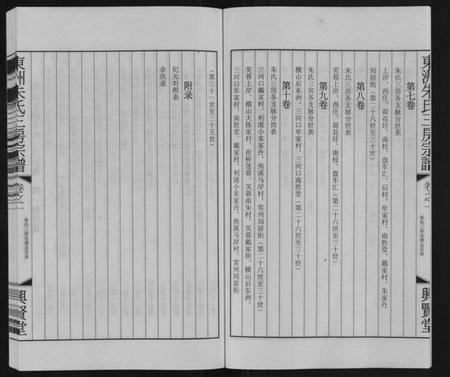 東洲朱氏三房宗譜
卷之一
朱氏三房宗譜總目录
興賢堂
第七卷
朱氏三房各支脉分世系
上岸、西庄、荷花圩、南枝、盘车汇、后村、牟家村、南胜堂、戴家村、朱家丹
局前街（第二十六世至三十世）
第八卷
朱氏三房各支脉分世表
芙蓉上岸、西庄、荷花圩、南枝、盘车汇（第二十六世至三十世）
第九卷
朱氏三房各支脉分世表
横山后东洲、三河口牟家村、三河口南胜堂（第二十六世至三十世）
第十卷
朱氏三房各支脉分世表
三河口戴家村、利港小朱家丹、焦溪马岸村、常州局前街（第二十六世至三十世）
芙蓉上岸、横山大陈家村、崔桥莲蓉、芙蓉南朱村、戴家坝、横山后东洲、
三河口牟家村、南胜堂、戴家村、利港小朱家丹、焦溪马岸村、常州局前街
（第三十一世至三十五世）
附录
纪元对照表
余庆录
東洲朱氏三房宗譜
卷之一
朱氏三房宗譜總目录
興賢堂